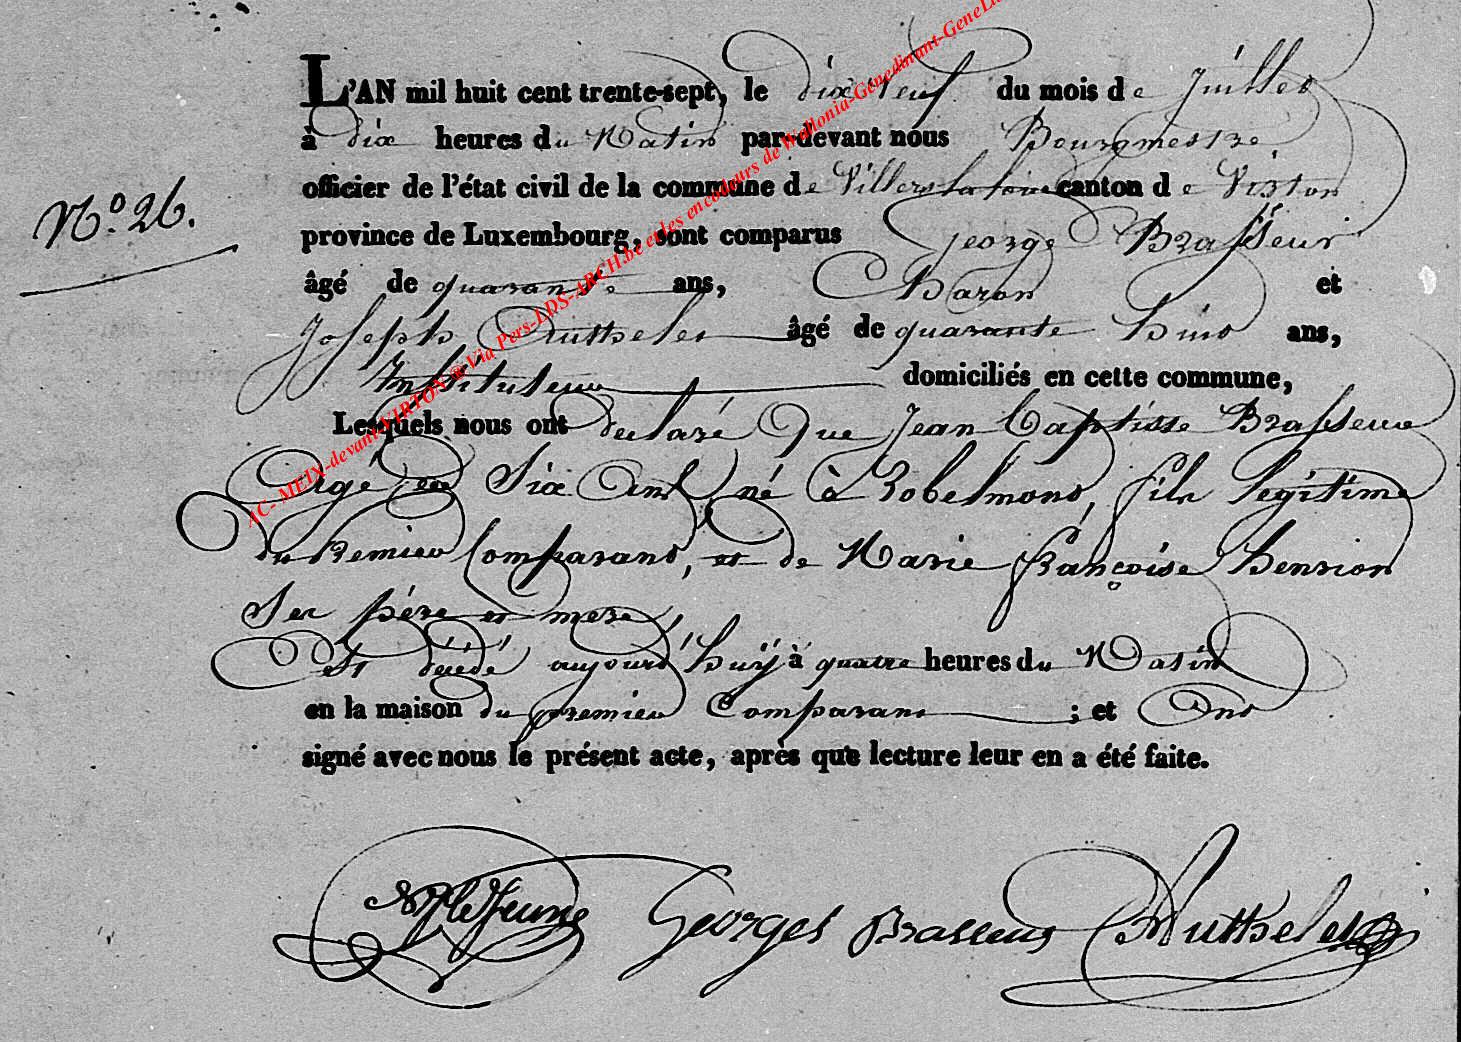 L'AN mil huit cent trente-sept, le dix neuf du mois de Juillet
à dix heures du Matin par-devant nous Bourgmestre
officier de l'état civil de la commune de Villers la loue canton de Virton
N.º 26.
province de Luxembourg, sont comparus George Brasseur
âgé de quarante ans, Baron et
Joseph Authelet âgé de quarante huit ans,
Instituteur domiciliés en cette commune,
Lesquels nous ont declaré Que Jean Baptiste Brasseur
Agé de Six Ans, né à Robelmont, fils legitime
du Premier Comparant, et de Marie françoise henrion
Ses père et mere,
Est décédé aujourd'huÿ à quatre heures du Matin
en la maison du premier Comparant ; et Ont
signé avec nous le présent acte, après que lecture leur en a été faite.
LeJeune Georges Brasseur Authelet
AC-MEIX-devant-VIRTON @Via Pers-LDS-ARCH.be et les encodeurs de Wallonia-Genedinant-GeneLu